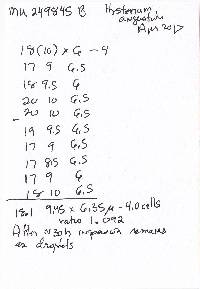 MU 249845 B Hysterium
angustatum
Apr 2017
18(10) x 6 - 4
17 9 6.5
18 9.5 6
20 10 6.5
20 10 6.5
19 9.5 6.5
17 9 6.5
17 8.5 6.5
17 9 6
18 10 6.5
18.1 9.45 x 6.35 µ - 4.0 cells
ratio 1.092
After 30 h in remains
as droplets